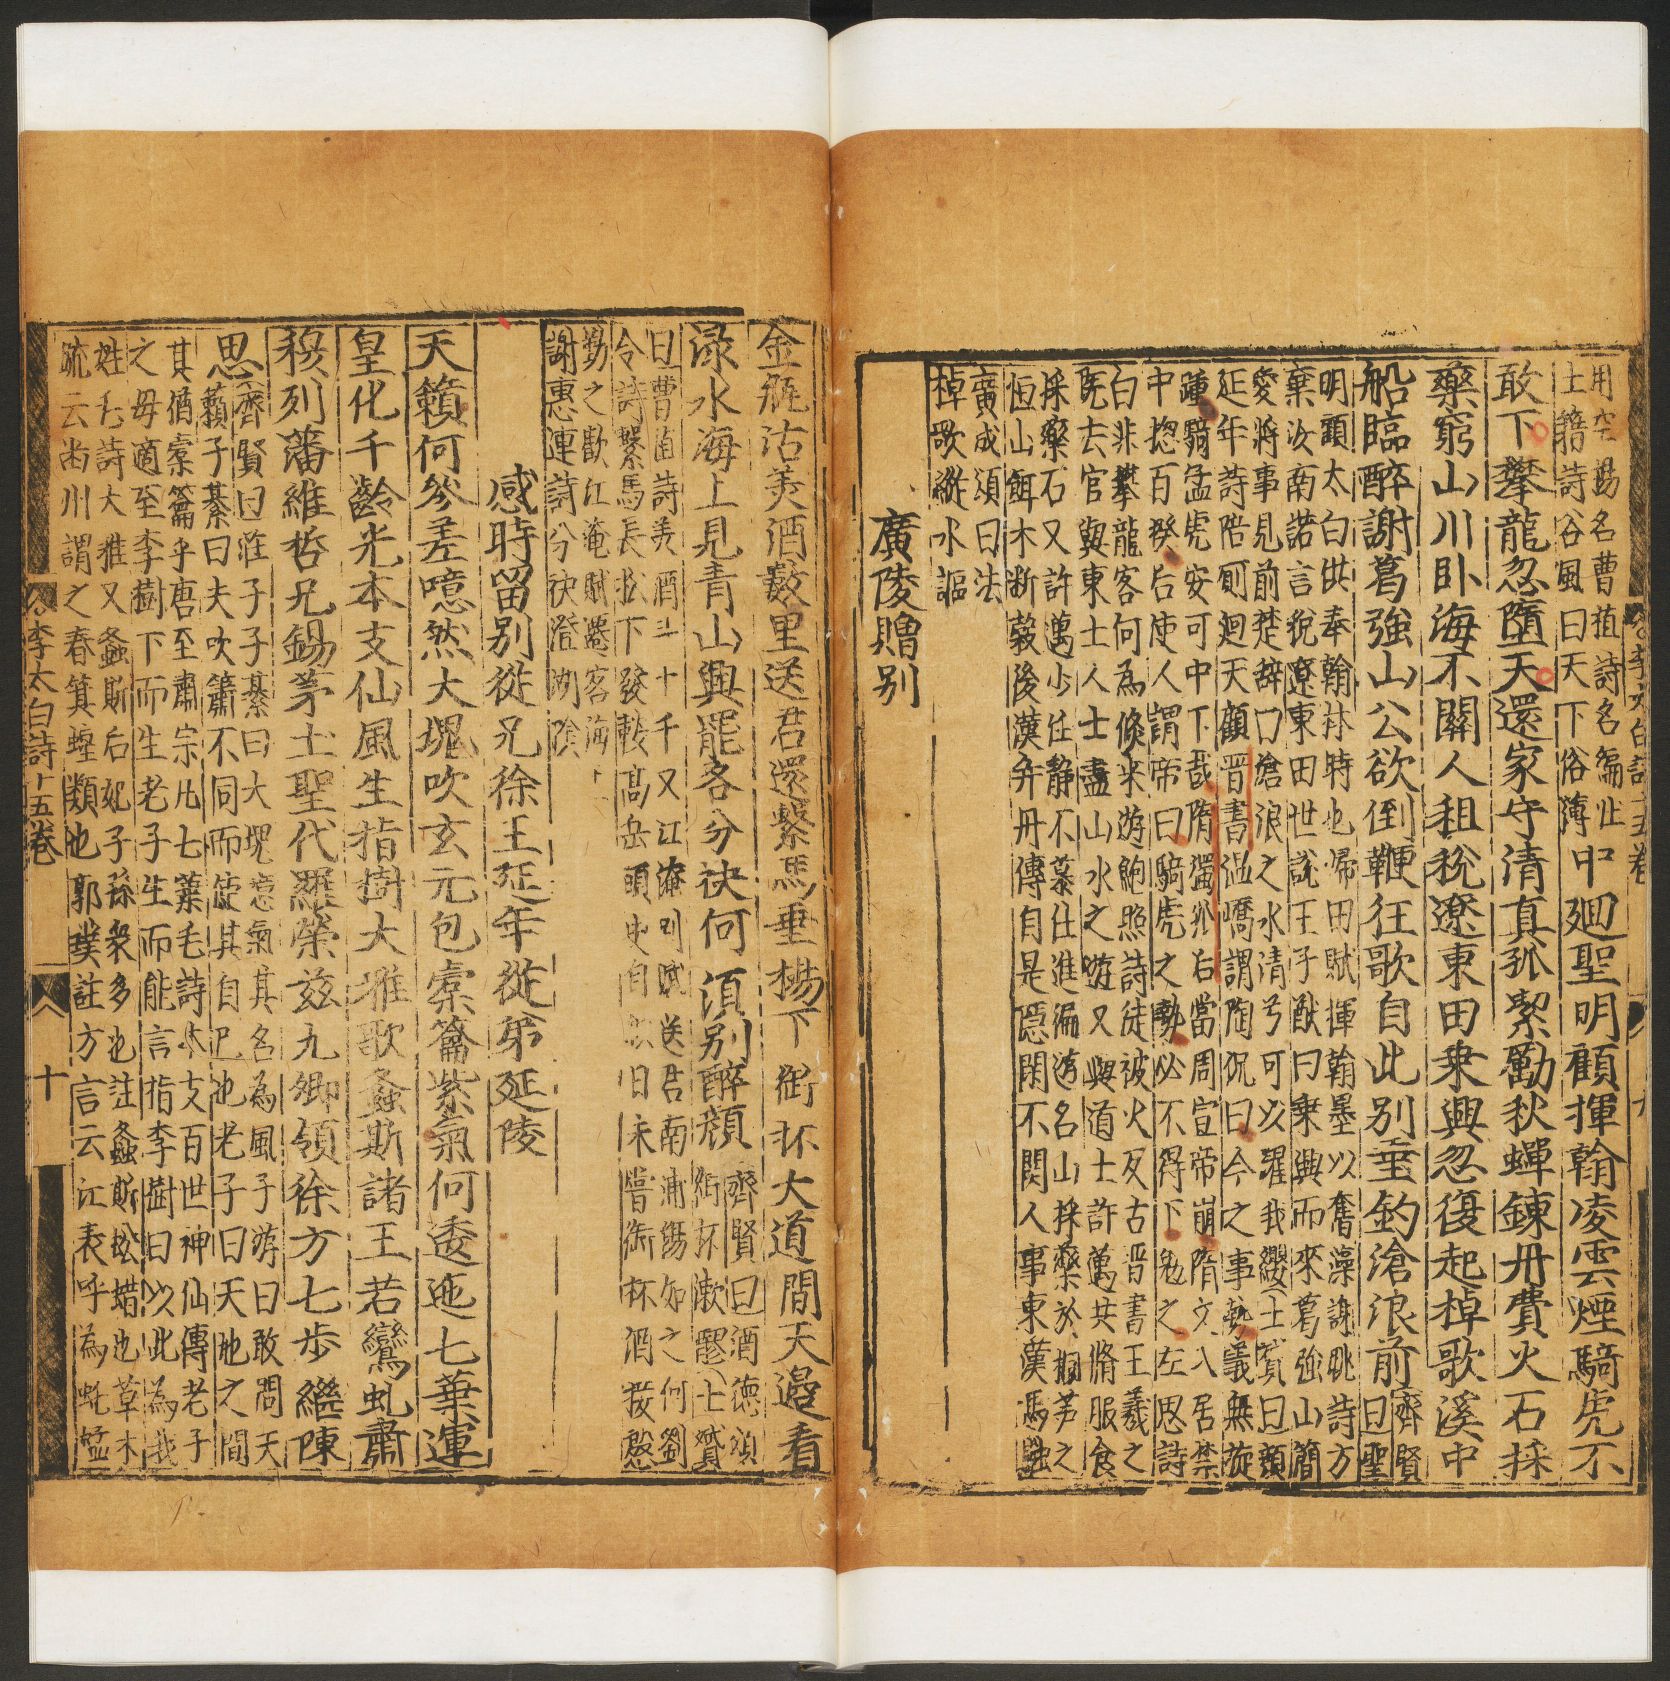 用空
名曹植詩名編
士贈詩谷風曰天下俗薄
中廻聖明顧揮翰凌雲煙騎虎不
敢下攀龍忽墮天還家守清真孤絜勵秋蟬鍊丹費火石採
藥窮山川卧海不關人租稅遼東田乗興忽復起棹歌溪中
船臨醉謝葛強山公欲倒鞭狂歌自此别垂釣滄浪前
齊賢
曰聖
明謂太白供奉翰林時也歸田賦揮翰墨以奮藻謝眺詩方
棄汝南諾言稅遼東田世說王子猷曰乗興而來葛強山簡
愛將事見前楚辭滄浪之水清兮可以濯我纓士贇曰顔
延年詩陪廁廻天顧晉書温嶠謂陶侃曰今之事勢義無旋
踵騎猛虎安可中下哉隋獨孤后當周宣帝崩隋文入居禁
中揔百揆后使人謂帝曰騎虎之勢必不得下勉之左思詩
白非攀龍客何為倐来游鮑照詩徒被火反古晉書王羲之
既去官與東土人士盡山水之遊又與道士許邁共脩服食
採藥石又許邁少恬靜不慕仕進徧遊名山採藥於桐芧之
恒山餌木断穀後漢
丹傳自是隱閑不関人事東漢馮
廣成須曰法
棹歌縱水謳
廣陵贈别
金瓶沽美酒數里送君還繫馬垂楊下銜杯大道間天邉看
渌水海上見青山興罷各分袂何須别醉顔
齊賢曰酒徳頌
銜杯漱醪士贇
曰曹植詩美酒斗十千又江淹别賦送君南浦傷如之何劉
令詩繫馬長松下發軔髙岳頭
自
曰未嘗銜杯酒接慇
懃之歡江淹賦
客海
謝惠連詩分袂澄湖陰
感時留别從兄徐王延年從弟延陵
天籟何參差噫然大塊吹玄元包槖籥紫氣何逶迤七葉運
皇化千齡光本支仙風生指樹大雅歌螽斯諸王若鸞虬肅
穆列藩維哲兄錫茅土聖代羅榮兹九卿領徐方七歩繼陳
思
齊賢曰莊子子綦曰大塊噫氣其名為風子游曰敢問天
籟子綦曰夫吹萬不同而使其自已也老子曰天地之間
其猶槖籥乎唐至肅宗凡七葉毛詩本支百世神仙傳老子
之母適至李樹下而生老子生而能言指李樹曰以此為我
姓毛詩大雅又螽斯后妃子孫衆多也註螽斯蚣蝑也草木
疏云幽州謂之春箕蝗類也郭璞註方言云江表呼為虴蜢
李太白詩十五卷
十